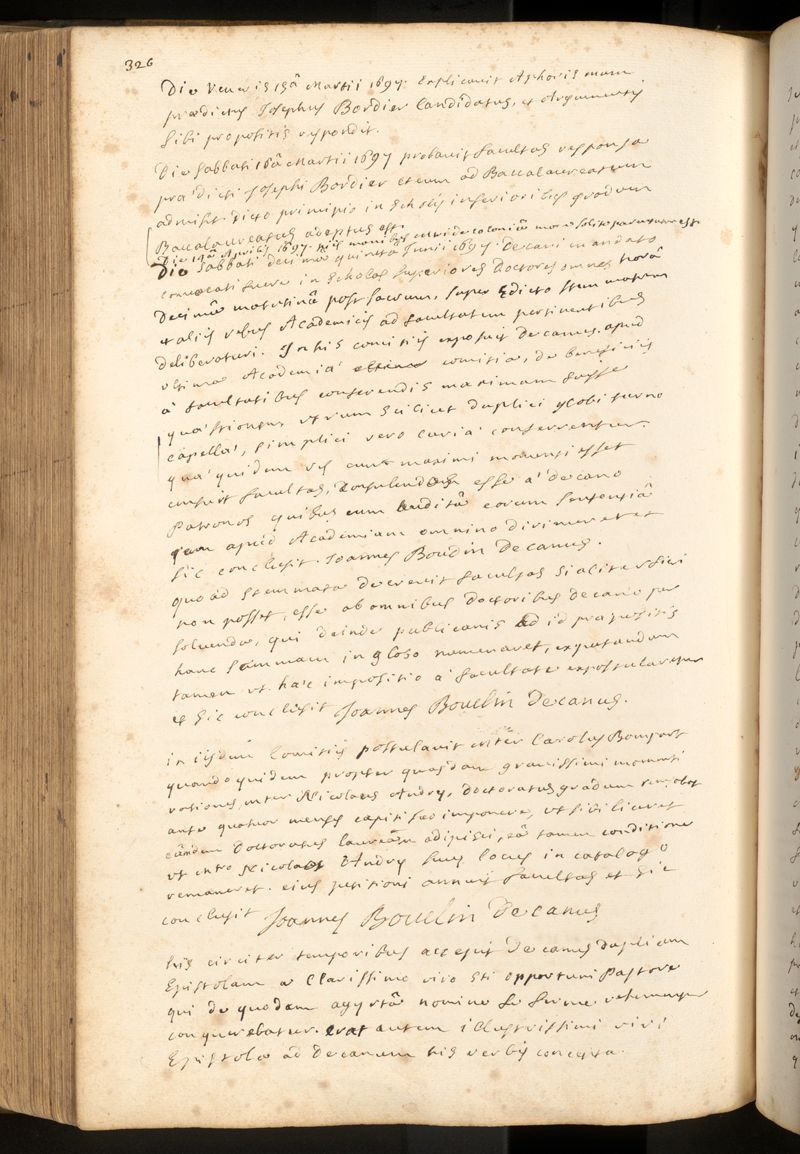 326
Die Veneris 15â Martii 1697 Explicavit Aphorismum
prædictus Josephus Bordier Candidatus, et Argumentis
sibi propositis respondit.
Die Sabbati 16â Martii 1697 probavit facultas responsa
prædicti Josephi Bordier et eum ad Baccalaureatum
admisit. dicto principio in scholis inferioribus gradum
Baccalaureatus adeptus est.
Die Aprilis 1697 more solito
Die Sabbati decimâ quintâ Junii 1697. Decani mandato
convocati fuere in scholas superiores Doctores omnes horâ
Decimâ matutinâ post sacrum, super Edicto stemmatum
et aliis rebus Academicis ad facultatem pertinentibus
deliberaturi. In his comitiis exposuit Decanus. apud
ultima Academiæ comitia, de beneficiis
à facultatibus conferendis maximam fuisse
quæstionem, utrum scilicet duplici globi turno
capellæ, simplici vero curia conferrentur.
quæ quidem res cum maximi momenti esset
censuit facultas, consulendos esse a decano
Patronos quibus cum audita eorum sententiâ
rem apud Academiam omnino dirimeret et
sic conclusit. Joannes Boudin Decanus.
quo ad stemmata decrevit facultas si aliter fieri
non posset, esse ab omnibus Doctoribus decano per
solvenda, qui deinde publicanis ad id præpositis
hanc summam in globo numeraret, expectandum
tamen ut hæc impositio a facultate expostularetur
et sic conclusit Joannes Boudin Decanus.
in iisdem Comitiis postulavit mter Carolus Bompart
quandoquidem propter quasdam gravissimi momenti
rationes, mter Nicolaus Andry, doctoratus gradum
ante quatuor menses capiti suo imponere, ut sibi liceret
eandem Doctoratus lauream adipisci, eâ tamen conditione
ut mtro Nicolao Andry suus locus in catalogo
remaneret. ejus petitioni annuit facultas et sic
conclusit Joannes Boudin Decanus
his circiter temporibus accepit Decanus duplicem
Epistolam a Clarissimo viro sti opportuni Pastore
qui de quodam agyrtâ nomine vehementer
conquerebatur. erat autem illustrissimi viri
Epistola ad Decanum his verbis concepta.